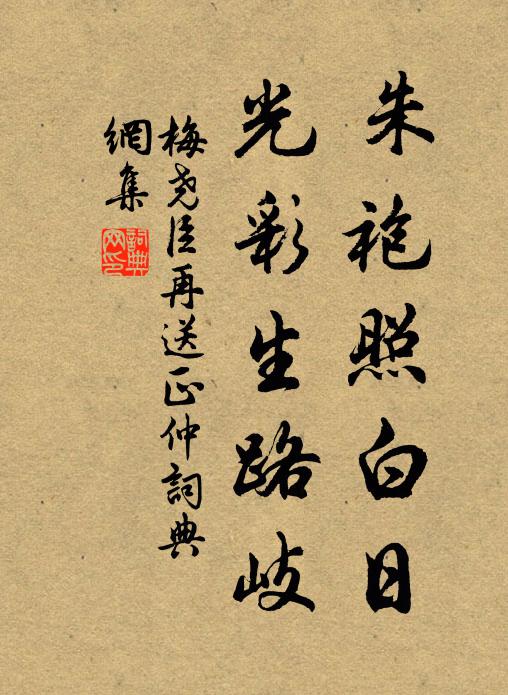 朱袍照白日
光彩生路岐
梅尧臣再送正仲詞典
網集
詞典
网印